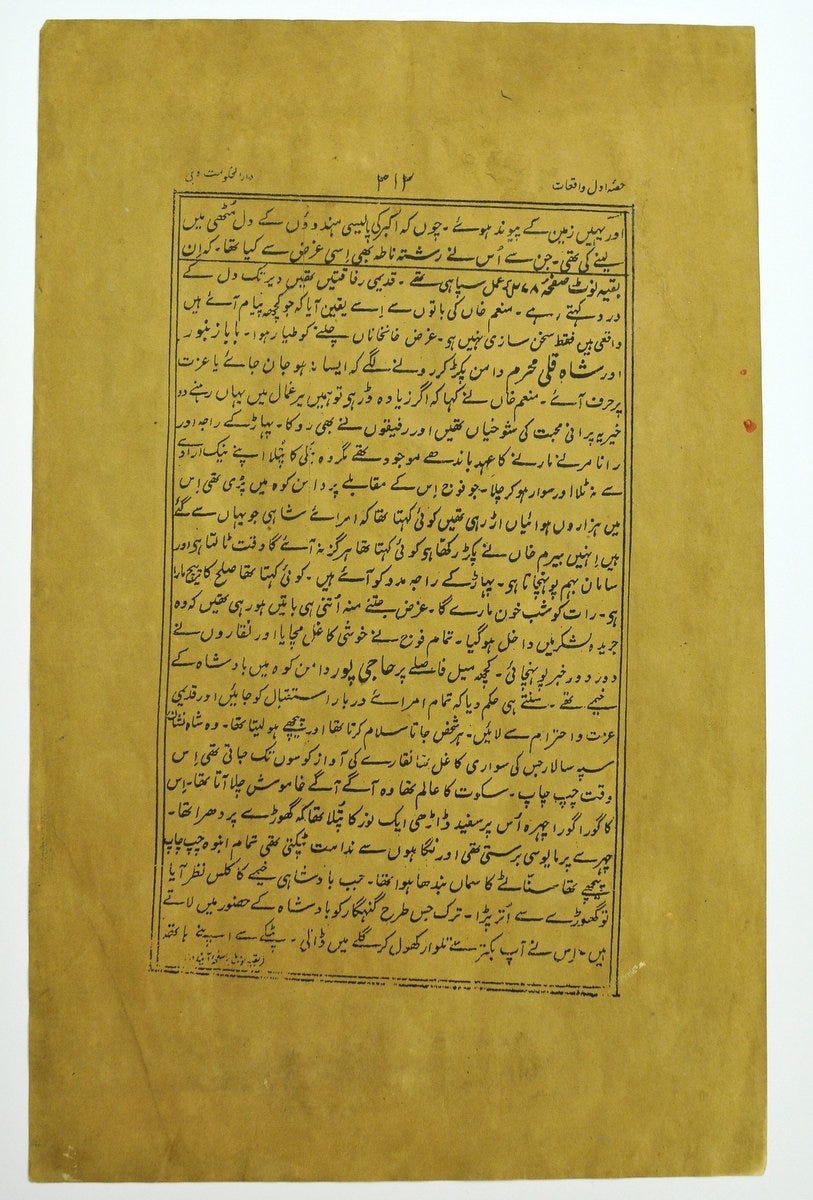 حصّہ اول واقعات
۳۱۳
دارالحکومت دہلی
اور یہیں زمین کے پیوند ہوئے ۔ چوں کہ اکبر کی پالیسی ہندوؤں کے دل مُٹھی میں
لینے کی تھی ۔ جن سے اُس نے رشتہ ناطہ بھی اِسی غرض سے کیا تھا ۔ کہ اِن
بقیہ نوٹ صفحہ ۲۷۸} عمل سپاہی تھے ۔ قدیمی رفاقتیں تھیں دیر تک دل کے
درد کہتے رہے ۔ منعم خاں کی باتوں سے اِسے یقین آیا کہ جو کچھ پیام آئے ہیں
واقعی ہیں فقط سخن سازی نہیں ہو ۔ غرض خانخاناں چلنے کو طیار ہوا ۔ بابا زنبور
اور شاہ قلی محرم دامن پکڑ کر رونے لگے کہ ایسا نہ ہو جان جائے یا عزت
پر حرف آئے ۔ منعم خاں نے کہا کہ اگر زیادہ ڈر ہی تو ہمیں یرغمال میں یہاں رہنے دو
خیر یہ پرانی محبت کی شوخیاں تھیں اور رفیقوں نے بھی روکا ۔ پہاڑ کے راجہ اور
رانا مرنے مارنے کا عہد باندھے موجود تھے مگر وہ نیکی کا پُتلا اپنے نیک ارادے
سے نہ ٹلا اور سوار ہو کر چلا ۔ جو فوج اِس کے مقابلے پر دامن کوہ میں پڑی تھی اِس
میں ہزاروں ہوائیاں اڑ رہی تھیں کوئی کہتا تھا کہ امرائے شاہی جو یہاں سے گئے
ہیں اِنہیں بیرم خاں نے پکڑ رکھا ہو کوئی کہتا تھا ہرگز نہ آئے گا وقت ٹالتا ہی اور
سامان بہم پونہچاتا ہو ۔ پہاڑ کے راجہ مدد کو آئے ہیں ۔ کوئی کہتا تھا صلح کا پیچ مارا
ہو ۔ رات کو شب خون مارے گا ۔ غرض جتنے منہ اُتنی ہی باتیں ہو رہی تھیں کہ وہ
جریدہ لشکر میں داخل ہو گیا ۔ تمام فوج نے خوشی کا غل مچایا اور نقاروں نے
دور دور خبر پونہچائی ۔ کچھ میل فاصلے پر حاجی پور دامن کوہ میں بادشاہ کے
خیمے تھے ۔ سنتے ہی حکم دیا کہ تمام امرائے دربار استقبال کو جائیں اور قدیمی
عزت و احترام سے لائیں ۔ ہر شخص جاتا سلام کرتا تھا اور پیچھے ہو لیتا تھا ۔ وہ شاہ نشان
سپہ سالار جس کی سواری کا غل نقارے کی آواز کوسوں تک جاتی تھی اِس
وقت چپ چاپ ۔ سکوت کا عالم تھا وہ آگے آگے خاموش چلا آتا تھا ۔ اِس
کا گورا گورا چہرہ اُس پر سفید ڈاڑھی ایک نور کا پُتلا تھا کہ گھوڑے پر دھرا تھا ۔
چہرے پر مایوسی برستی تھی اور نگاہوں سے ندامت ٹپکتی تھی تمام انبوہ چپ چاپ
پیچھے تھا سنّاٹے کا سماں بندھا ہوا تھا ۔ جب بادشاہی خیمے کا کلس نظر آیا
تو گھوڑے سے اُتر پڑا ۔ ترک جس طرح گنہگار کو بادشاہ کے حضور میں لاتے
ہیں ۔ اِس نے آپ بکتر سے تلوار کھول کر گلے میں ڈالی ۔ پٹکے سے اپنے ہاتھ